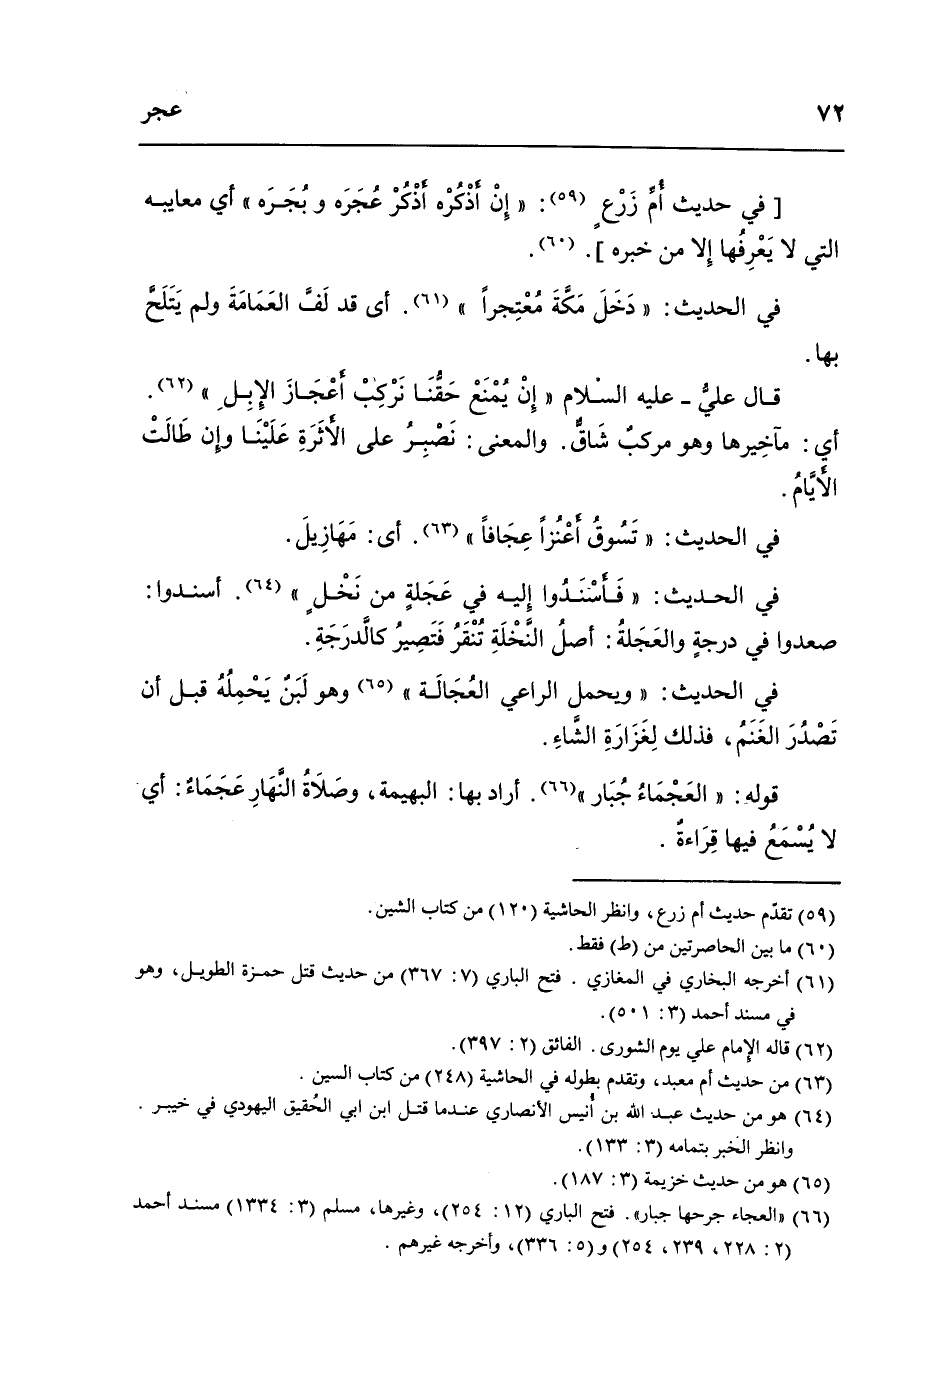 ٧٢ عجر
[ في حديث أُمِّ زَرْعٍ (٥٩): « إِنْ أَذْكُرْه أَذْكُرْ عُجَرَه و بُجَرَه » أي معايبه
التي لا يَعْرِفُها إلا من خبره ]. (٦٠).
في الحديث: « دَخَلَ مَكَّةَ مُعْتِجراً » (٦١). أى قد لَفَّ العَمَامَةَ ولم يَتَلَحَّ
بها.
قال عليُّ ـ عليه السلام « إِنْ يُمْنَعْ حَقُّنَا نَرْكِبْ أَعْجَازَ الإِبلِ » (٦٢).
أي: مآخيرها وهو مركبٌ شَاقٌّ. والمعنى: نَصْبِرُ على الأَثَرَةِ عَلَيْنَا وإن طَالَتْ
الأَيَّامُ.
في الحديث: « تَسُوقُ أَعْنُزاً عِجَافاً » (٦٣). أى: مَهَازِيلَ.
في الحديث: « فَأَسْنَدُوا إليه في عَجَلةٍ من نَخْلٍ » (٦٤). أسندوا:
صعدوا في درجةٍ والعَجَلةُ: أصلُ النَّخْلَةِ تُنْقَرُ فَتَصِيرُ كالَّدرَجَةِ.
في الحديث: « ويحمل الراعي العُجَالَة » (٦٥) وهو لَبَنٌ يَحْمِلُهُ قبل أن
تَصْدُرَ الغَنَمُ، فذلك لِغَزَارَةِ الشَّاءِ.
قوله: « العَجْمَاءُ جُبَار »(٦٦). أراد بها: البهيمة، وصَلَاةُ النَّهَارِ عَجَمَاءُ: أي
لا يُسْمَعُ فيها قِرَاءةٌ .
(٥٩) تقدّم حديث أم زرع، وانظر الحاشية (١٢٠) من كتاب الشين.
(٦٠) ما بين الحاصرتين من (ط) فقط.
(٦١) أخرجه البخاري في المغازي . فتح الباري (٧: ٣٦٧) من حديث قتل حمزة الطويل، وهو
في مسند أحمد (٣: ٥٠١).
(٦٢) قاله الإمام علي يوم الشورى. الفائق (٢: ٣٩٧).
(٦٣) من حديث أم معبد، وتقدم بطوله في الحاشية (٢٤٨) من كتاب السين .
(٦٤) هو من حديث عبد الله بن أُنيس الأنصاري عندما قتل ابن ابي الحُقيق اليهودي في خيبر .
وانظر الخَبر بتمامه (٣: ١٣٣).
(٦٥) هو من حديث خزيمة (٣: ١٨٧).
(٦٦) «العجاء جرحها جبار». فتح الباري (١٢: ٢٥٤)، وغيرها، مسلم (٣: ١٣٣٤) مسند أحمد
(٢: ٢٢٨، ٢٣٩، ٢٥٤) و(٥: ٣٣٦)، وأخرجه غيرهم .